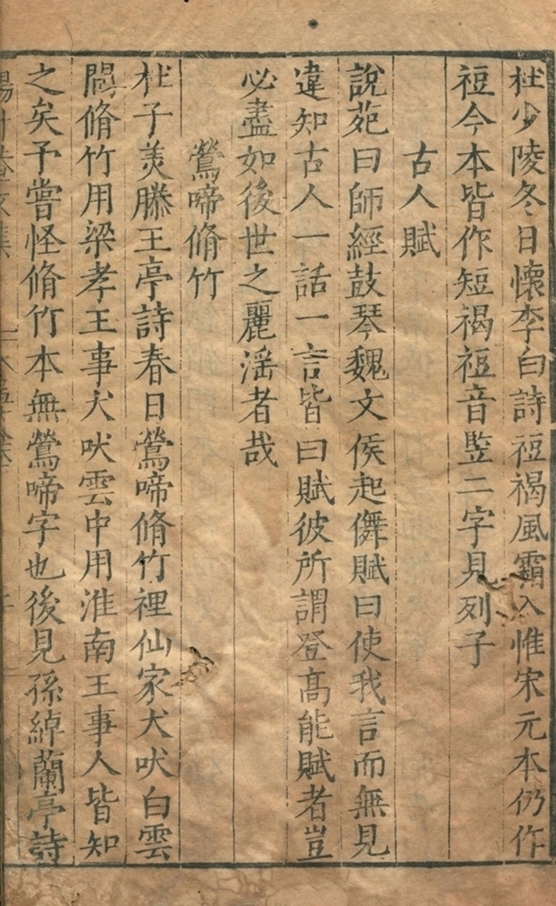 杜少陵冬日懷李白詩裋褐風霜入惟宋元本仍作
裋今本皆作短褐裋音竪二字見列子
古人賦
說苑曰師經鼓琴魏文侯起儛賦曰使我言而無見
違知古人一話一言皆曰賦彼所謂登高能賦者豈
必盡如後世之麗滛者哉
鶯啼脩竹
杜子美滕王亭詩春日鶯啼脩竹裡仙家犬吠白雲
間脩竹用梁孝王事犬吠雲中用淮南王事人皆知
之矣予嘗怪脩竹本無鶯啼字也後見孫綽蘭亭詩